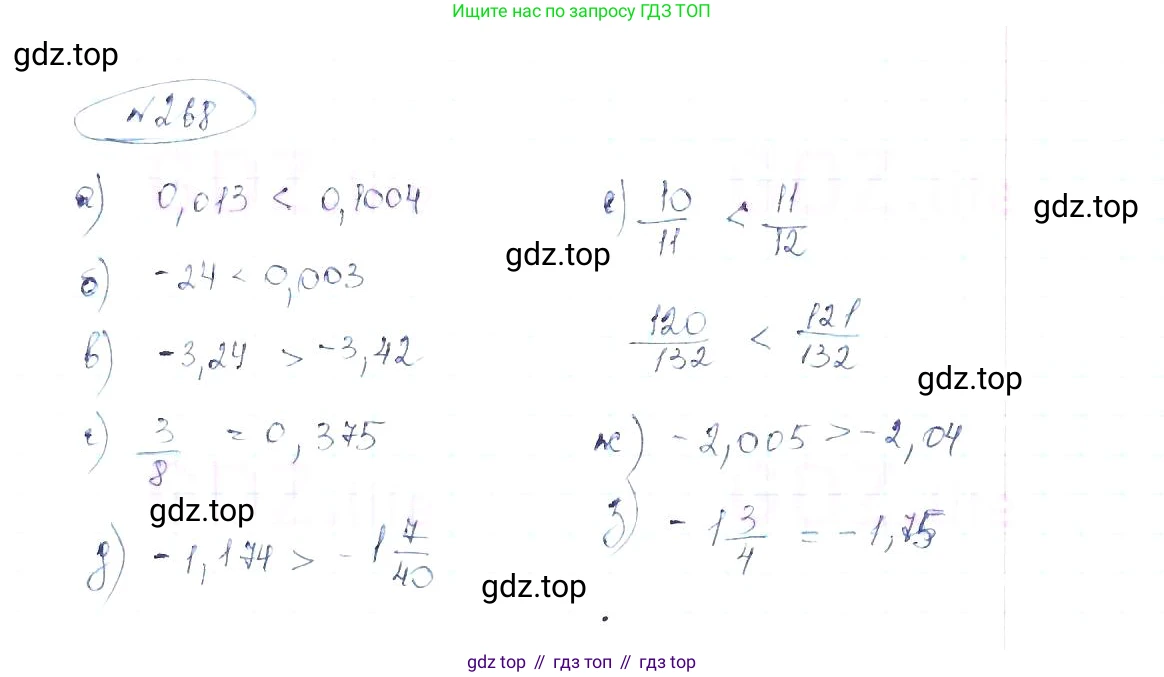 Ищите нас по запросу ГДЗ ТОП
gdz.top
№268
а) 0,013 < 0,1004
е) 10/11 < 11/12
gdz.top
gdz.top
б) -24 < 0,003
120/132 < 121/132
в) -3,24 > -3,42
gdz.top
г) 3/8 = 0,375
ж) -2,005 > -2,04
gdz.top
з) -1 3/4 = -1,75
д) -1,174 > -1 7/40
gdz.top
gdz top // гдз топ // гдз top